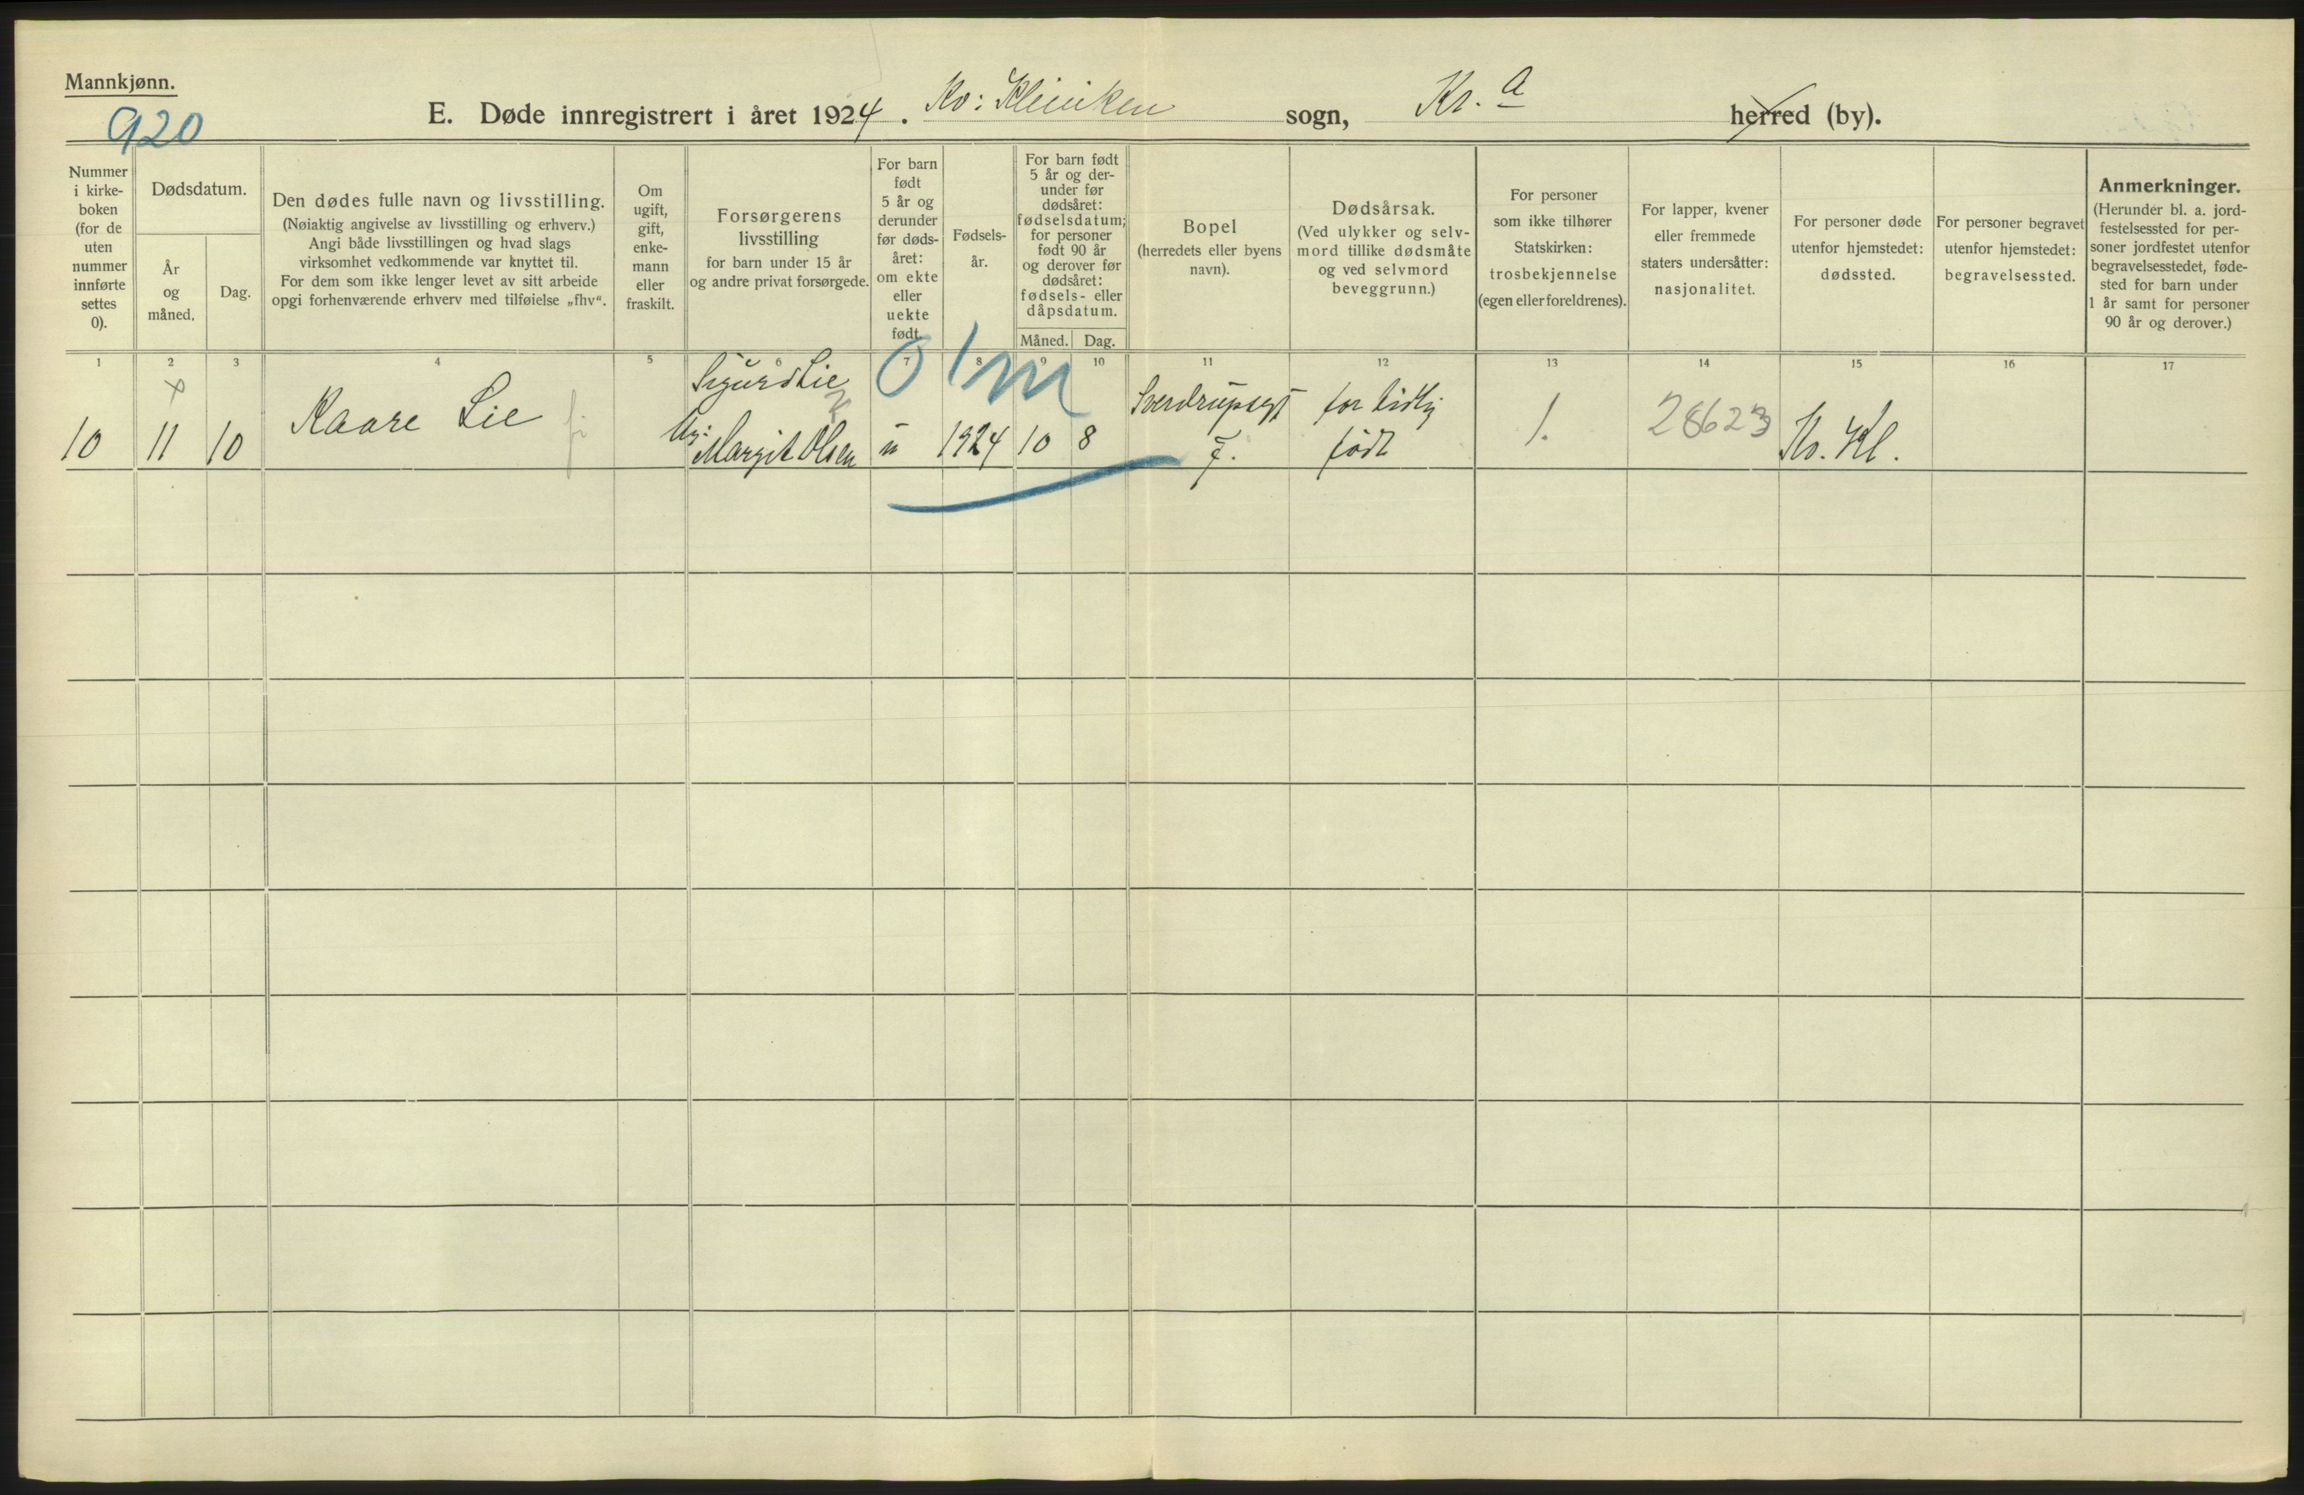 Mannkjønn.
920
E. Døde innregistrert i året 1924. Kv: Kliniken sogn, Kr.a herred (by).
Nummer i kirke-boken (for de uten nummer innførte settes 0).
Dødsdatum.
År og måned.
Dag.
Den dødes fulle navn og livsstilling.
(Nøiaktig angivelse av livsstilling og erhverv.)
Angi både livsstillingen og hvad slags
virksomhet vedkommende var knyttet til.
For dem som ikke lenger levet av sitt arbeide
opgi forhenværende erhverv med tilføielse „fhv“.
Om ugift, gift, enke-mann eller fraskilt.
Forsørgerens
livsstilling
for barn under 15 år
og andre privat forsørgede.
For barn født 5 år og derunder før døds-året: om ekte eller uekte født.
Fødsels-
år.
For barn født 5 år og der-under før dødsåret: fødselsdatum; for personer født 90 år og derover før dødsåret: fødsels- eller dåpsdatum.
Måned. Dag.
Bopel
(herredets eller byens
navn).
Dødsårsak.
(Ved ulykker og selv-
mord tillike dødsmåte
og ved selvmord
beveggrunn.)
For personer
som ikke tilhører
Statskirken:
trosbekjennelse
(egen eller foreldrenes).
For lapper, kvener
eller fremmede
staters undersåtter:
nasjonalitet.
For personer døde
utenfor hjemstedet:
dødssted.
For personer begravet
utenfor hjemstedet:
begravelsessted.
Anmerkninger.
(Herunder bl. a. jord-
festelsessted for per-
soner jordfestet utenfor
begravelsesstedet,føde-
sted for barn under
1 år samt for personer
90 år og derover.)
1 2 3 4 5 6 7 8 9 10 11 12 13 14 15 16 17
Sigurd Lie 0 1 m Sverdrupsgt for tidlig
10 11 10 Kaare Lie Ug: Margit Olsen u 1924 10 8 7. født 1. 28623 Kv. Kl.